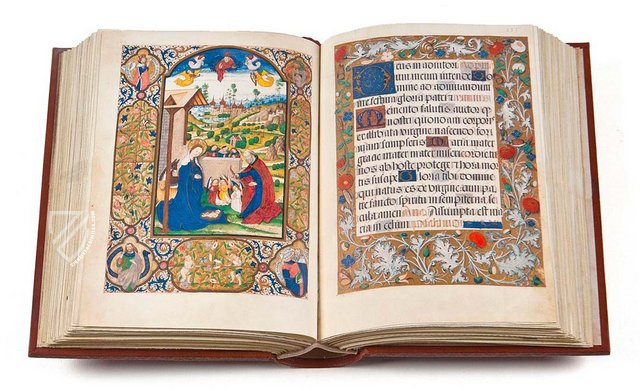 Deus in adiutori
um meum intende Do
mine ad adiuvandum
me festina gloria patri
Memento salutis auctor q
nostri quondam cor
ex illibata virgine nascendo for
mam Maria mater
gratie mater misericordie
nos ab hoste protege hora mor
tis suscipe Gloria tibi domine
qui natus es de virgine cum pa
tre sancto spiritu in sempiterna se
cula Amen Assumpta est ma
ria in celum